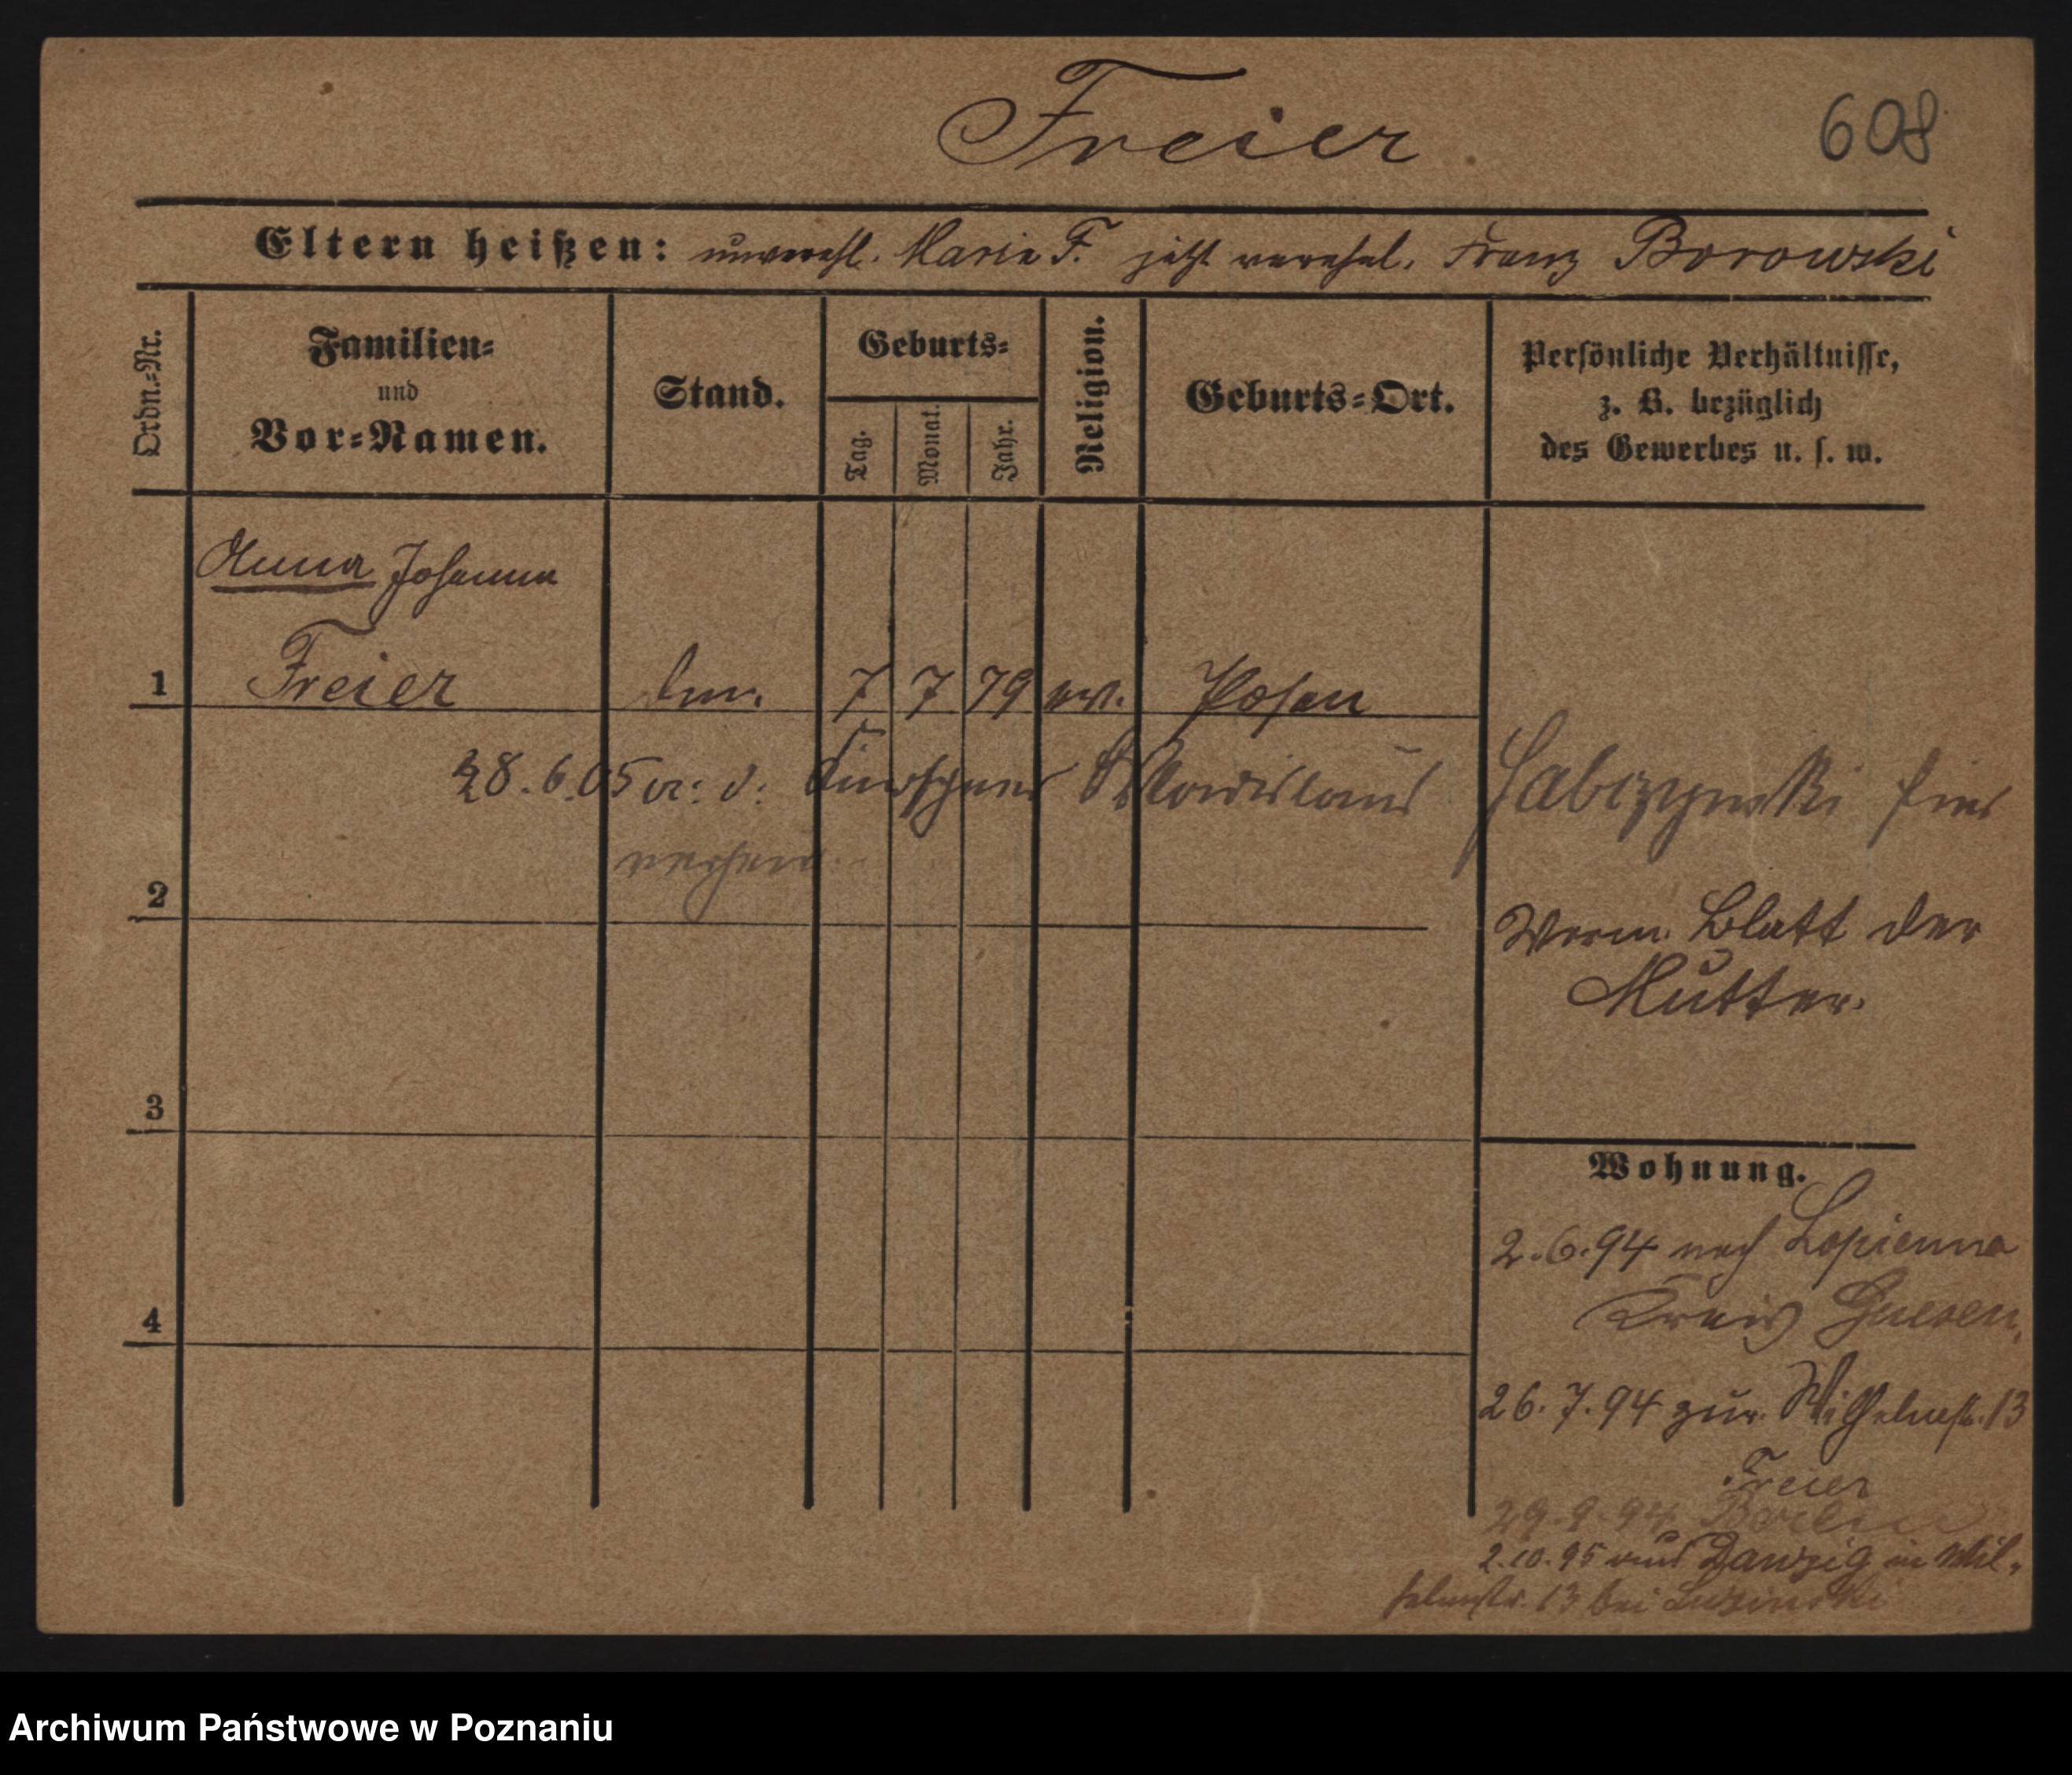 Freier
608
Eltern heißen: unverehl. Marie F. jetzt verehel. Franz Borowski
Ordn.-Nr.
Familien-
und
Vor-Namen.
Stand.
Geburts-
Tag.
Monat.
Jahr.
Religion.
Geburts-Ort.
Persönliche Verhältnisse,
z. B. bezüglich
des Gewerbes u. s. w.
Anna Johanna
1 Freier 7 7 79 ev. Posen
28.6.05 Kürschner hier
2
Verm. Blatt der
Mutter.
3
Wohnung.
2.6.94 nach Lopienno
Kreis Gnesen.
4
26.7.94 zur. Wilhelmstr. 13
Freier
29.9.94 Berlin
2.10.95 aus Danzig in Wil-
helmstr. 13 bei
Archiwum Państwowe w Poznaniu